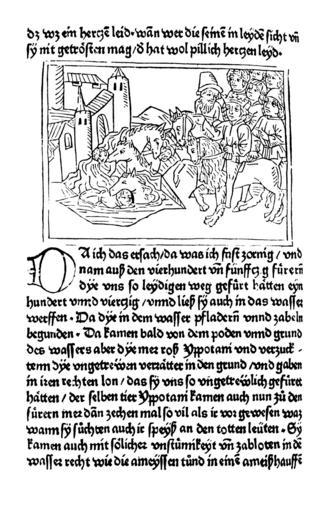 dz wz ein hertzē leid · wān wer die seinē in leydē sicht vñ
sy nit getrösten mag / ð hat wol pillich hertzen leyd ·
DA ich das ersach / da was ich fast zoenig / vnd
nam auß den vierhundert vñ fünfftzg fürern
dye vns so leydigen weg gefürt hatten eyn
hundert vnnd viertzig / vnnd ließ sy auch in das wasser
werffen · Da dye in dem wasser pfladern vnnd zabeln
begunden · Da kamen bald von dem poden vnnd grund
des wassers aber dye mer roß Ypotani vnd verzuck -
tenn dye vngetrewen verrätter in den grund / vnd gaben
in iren rechten lon / das sy vns so vngetrewlich gefürt
hätten / der selben tier Ypotani kamen auch nun zů den
fürern mer dān zechen mal so vil als ir vor gewesen was
wann sy sůchten auch ir speyß an den totten leüten · Sy
kamen auch mit sölicher vnstümikeyt vñ zabloten in dē
wasser recht wie die ameyssen tůnd in einē ameißhauffē